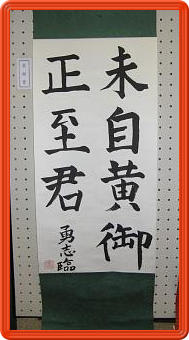 未自黄御
正至君
勇志臨